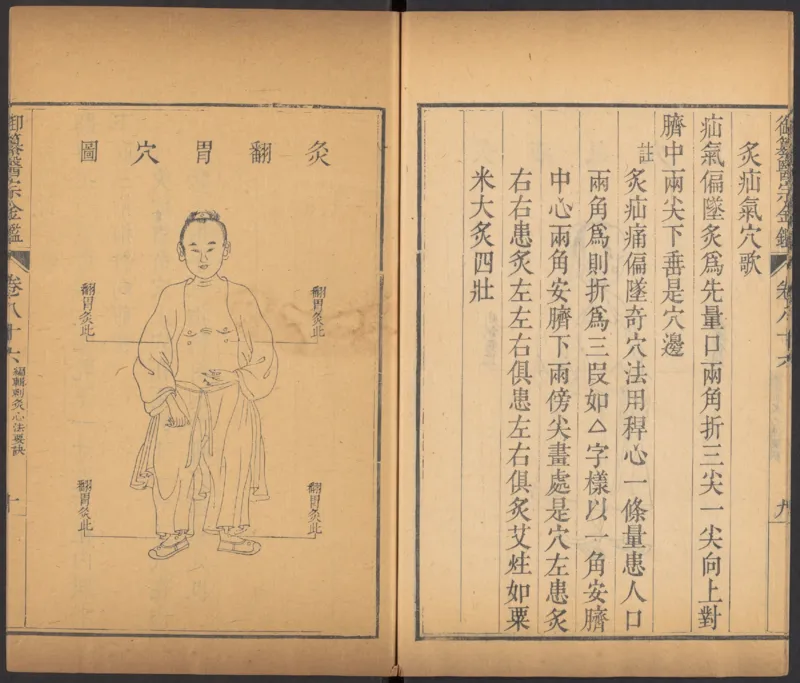 御纂醫宗金鑑
卷八十六
九
灸疝氣穴歌
疝氣偏墜灸爲先量口兩角折三尖一尖向上對
臍中兩尖下垂是穴邊
註
灸疝痛偏墜奇穴法用稈心一條量患人口
兩角爲則折爲三叚如△字樣以一角安臍
中心兩角安臍下兩傍尖畫處是穴左患灸
右右患灸左左右俱患左右俱灸艾炷如粟
米大灸四壯
灸翻胃穴圖
翻胃灸此
翻胃灸此
翻胃灸此
翻胃灸此
御纂醫宗金鑑
卷八十六
編輯刺灸心法要訣
十